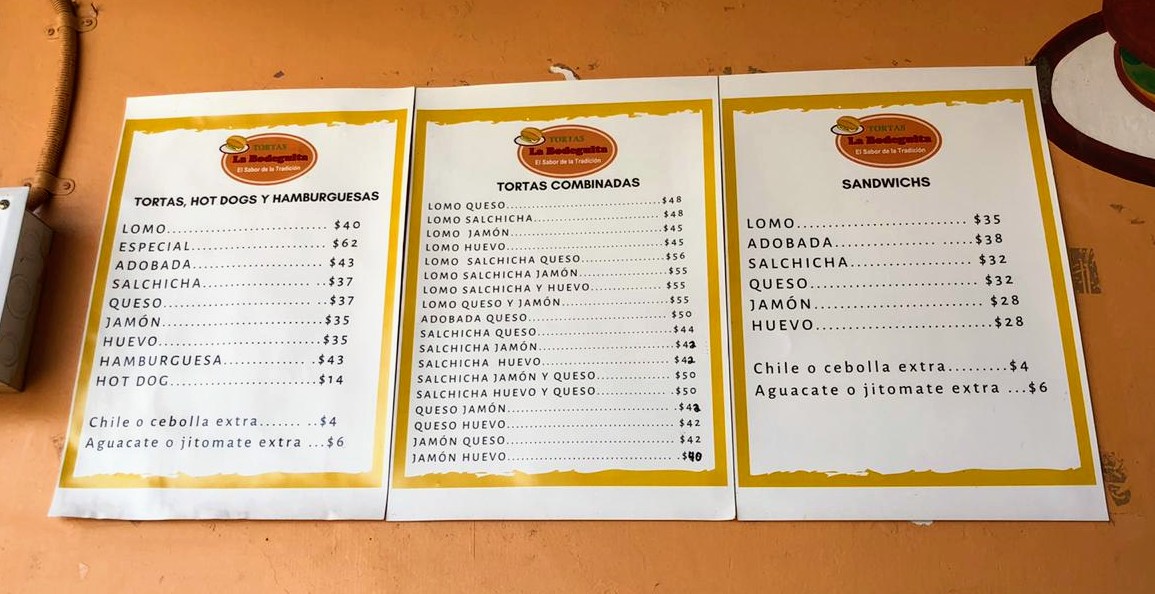 TORTAS
La Bodeguita
El Sabor de la Tradición
TORTAS, HOT DOGS Y HAMBURGUESAS
LOMO........................... $40
ESPECIAL....................... $62
ADOBADA....................... $43
SALCHICHA.................. ..$37
QUESO.......................... ..$37
JAMÓN...........................$35
HUEVO...........................$35
HAMBURGUESA............. .$43
HOT DOG........................$14
Chile o cebolla extra....... ..$4
Aguacate o jitomate extra ...$6
TORTAS
La Bodeguita
El Sabor de la Tradición
TORTAS COMBINADAS
LOMO QUESO..............................$48
LOMO SALCHICHA........................ $48
LOMO JAMÓN.............................$45
LOMO HUEVO.............................$45
LOMO SALCHICHA QUESO................$56
LOMO SALCHICHA JAMÓN................$55
LOMO SALCHICHA Y HUEVO..............$55
LOMO QUESO Y JAMÓN...................$55
ADOBADA QUESO..........................$50
SALCHICHA QUESO........................$44
SALCHICHA JAMÓN........................$42
SALCHICHA HUEVO........................$42
SALCHICHA JAMÓN Y QUESO..............$50
SALCHICHA HUEVO Y QUESO..............$50
QUESO JAMÓN............................ .$42
QUESO HUEVO.............................$42
JAMÓN QUESO.............................$42
JAMÓN HUEVO............................ .$40
TORTAS
La Bodeguita
El Sabor de la Tradición
SANDWICHS
LOMO........................ $35
ADOBADA................ .....$38
SALCHICHA.................. $32
QUESO........................ $32
JAMÓN........................ $28
HUEVO.........................$28
Chile o cebolla extra.........$4
Aguacate o jitomate extra ...$6